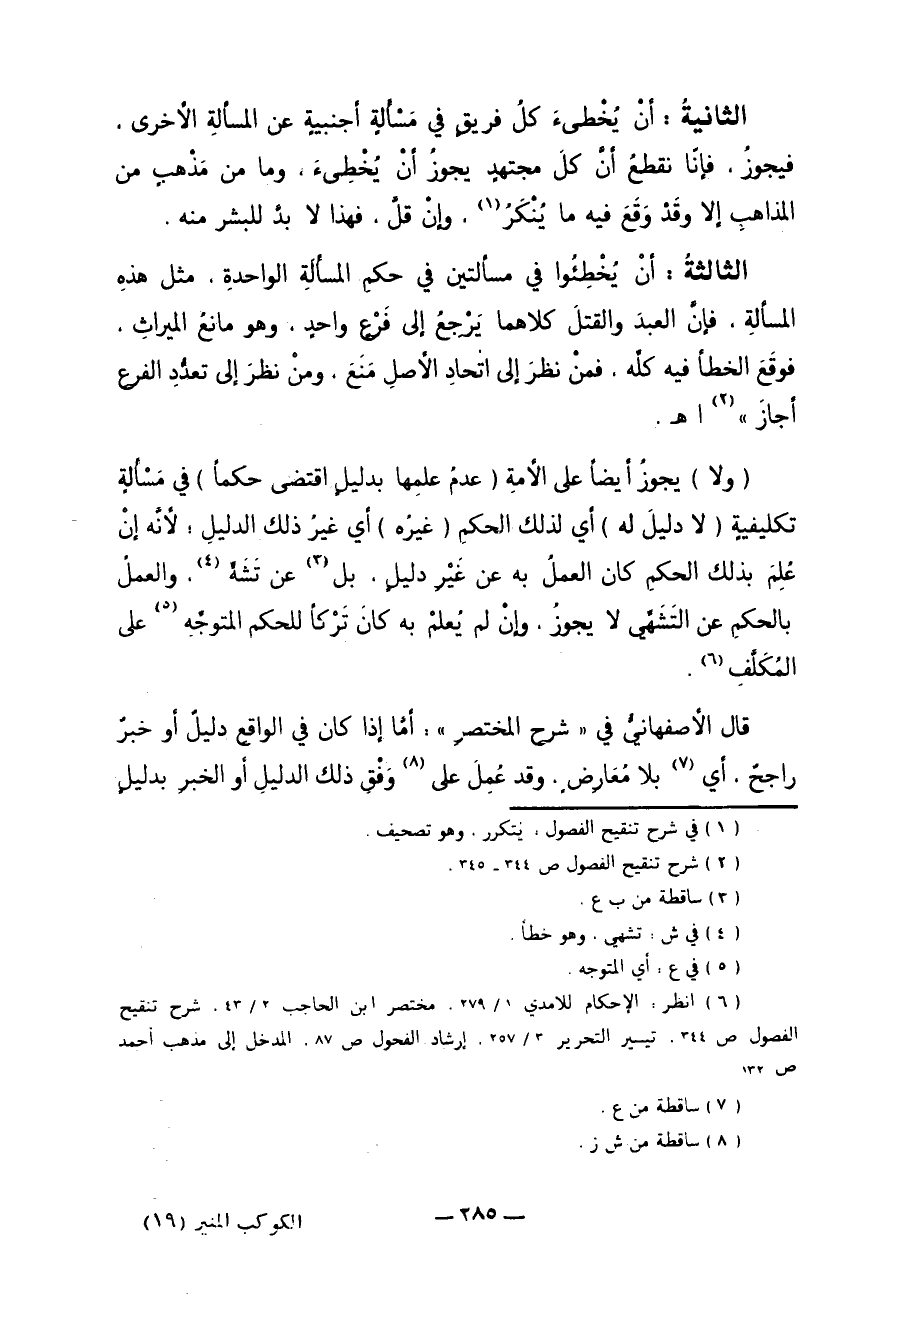 الثانيةُ : أنْ يُخْطىءَ كلُ فريقٍ في مَسْألةٍ أجنبيةٍ عن المسألةِ الأخرى ،
فيجوزُ ، فإنّا نقطعُ أنَّ كلَ مجتهدٍ يجوزُ أنْ يُخْطِىءَ ، وما من مَذْهبٍ من
المذاهبِ إلا وقَدْ وَقَعَ فيه ما يُنْكَرُ(١) ، وإنْ قلَّ ، فهذا لا بدَّ للبشر منه .
الثالثةُ : أنْ يُخْطِئُوا في مسألتين في حكمِ المسألةِ الواحدةِ ، مثل هذهِ
المسألةِ ، فإنَّ العبدَ والقتلَ كلاهما يَرْجِعُ إلى فَرْعٍ واحدٍ ، وهو مانعُ الميراثِ ،
فوقَعَ الخطأ فيه كلّه ، فمنْ نظرَ إلى اتحادِ الأصلِ مَنَعَ ، ومنْ نظرَ إلى تعدُّدِ الفرع
أجازَ »(٢) ا هـ .
( ولا ) يجوزُ أيضاً على الأمةِ ( عدمُ علمِها بدليلٍ اقتضى حكماً ) في مَسْألةٍ
تكليفيةٍ ( لا دليلَ له ) أي لذلك الحكمِ ( غيرُه ) أي غيرُ ذلك الدليلِ ؛ لأنَّه إنْ
عُلِمَ بذلك الحكمِ كان العملُ به عن غَيْرِ دليلٍ ، بل(٣) عن تَشَهٍّ(٤) ، والعملُ
بالحكمِ عن التَشَهِّي لا يجوزُ ، وإنْ لم يُعلمْ به كانَ تَرْكاً للحكمِ المتوجِّه(٥) على
المُكَلَّفِ(٦) .
قال الأصفهانيُّ في « شرحِ المختصرِ » ؛ أمّا إذا كان في الواقعِ دليلٌ أو خبرٌ
راجحٌ ، أي(٧) بلا مُعَارِضٍ ، وقد عُمِلَ على(٨) وَفْقِ ذلك الدليلِ أو الخبرِ بدليلٍ
( ١ ) في شرح تنقيح الفصول ؛ يتكرر . وهو تصحيف .
( ٢ ) شرح تنقيح الفصول ص ٣٤٤ ـ ٣٤٥ .
( ٣ ) ساقطة من ب ع .
( ٤ ) في ش ؛ تشهي . وهو خطأ .
( ٥ ) في ع ؛ أي المتوجه .
( ٦ ) انظر : الإحكام للآمدي ١ / ٢٧٩ ، مختصر ابن الحاجب ٢ / ٤٣ ، شرح تنقيح
الفصول ص ٣٤٤ ، تيسير التحرير ٣ / ٢٥٧ ، إرشاد الفحول ص ٨٧ ، المدخل إلى مذهب أحمد
ص ١٣٢
( ٧ ) ساقطة من ع .
( ٨ ) ساقطة من ش ز .
— ٢٨٥ —
الكوكب المنير (١٩)